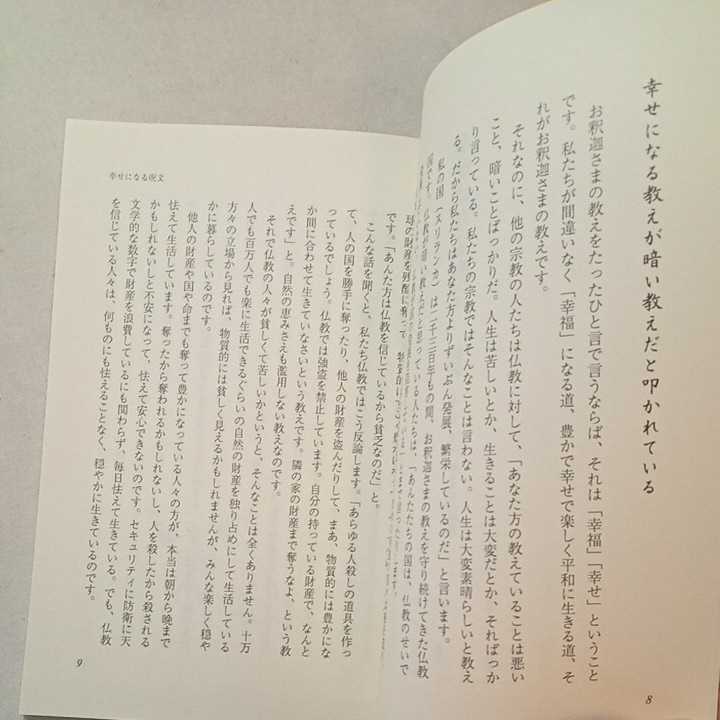 幸せになる教えが暗い教えだと叩かれている
お釈迦さまの教えをたったひと言で言うならば、それは「幸福」「幸せ」ということ
です。私たちが間違いなく「幸福」になる道、豊かで幸せで楽しく平和に生きる道、そ
れがお釈迦さまの教えです。
それなのに、他の宗教の人たちは仏教に対して、「あなた方の教えていることは悪い
こと、暗いことばっかりだ。人生は苦しいとか、生きることは大変だとか、そればっか
り言っている。私たちの宗教ではそんなことは言わない。人生は大変素晴らしいと教え
る。だから私たちはあなた方よりずいぶん発展、繁栄しているのだ」と言います。
私の国（スリランカ）は二千三百年もの間、お釈迦さまの教えを守り続けてきた仏教
国です。仏教が暗い教えだと思っている人たちは、「あんたたちの国は、仏教のせいで
8
幸せになる呪文
です。「あんた方は仏教を信じているから貧乏なのだ」と。
こんな話を聞くと、私たち仏教ではこう反論します。「あらゆる人殺しの道具を作っ
て、人の国を勝手に奪ったり、他人の財産を盗んだりして、まあ、物質的には豊かにな
っているでしょう。仏教では強盗を禁止しています。自分の持っている財産で、なんと
か間に合わせて生きていなさいという教えです。隣の家の財産まで奪うなよ、という教
えです」と。自然の恵みさえも濫用しない教えなのです。
それで仏教の人々が貧しくて苦しいかというと、そんなことは全くありません。十万
人でも百万人でも楽に生活できるぐらいの自然の財産を独り占めにして生活している
方々の立場から見れば、物質的には貧しく見えるかもしれませんが、みんな楽しく穏や
かに暮らしているのです。
他人の財産や国や命までも奪って豊かになっている人々の方が、本当は朝から晩まで
怯えて生活しています。奪ったから奪われるかもしれないし、人を殺したから殺される
かもしれないしと不安になって、怯えて安心できないのです。セキュリティに防衛に天
文学的な数字で財産を浪費しているにも関わらず、毎日怯えて生きている。でも、仏教
を信じている人々は、何ものにも怯えることなく、穏やかに生きているのです。
9